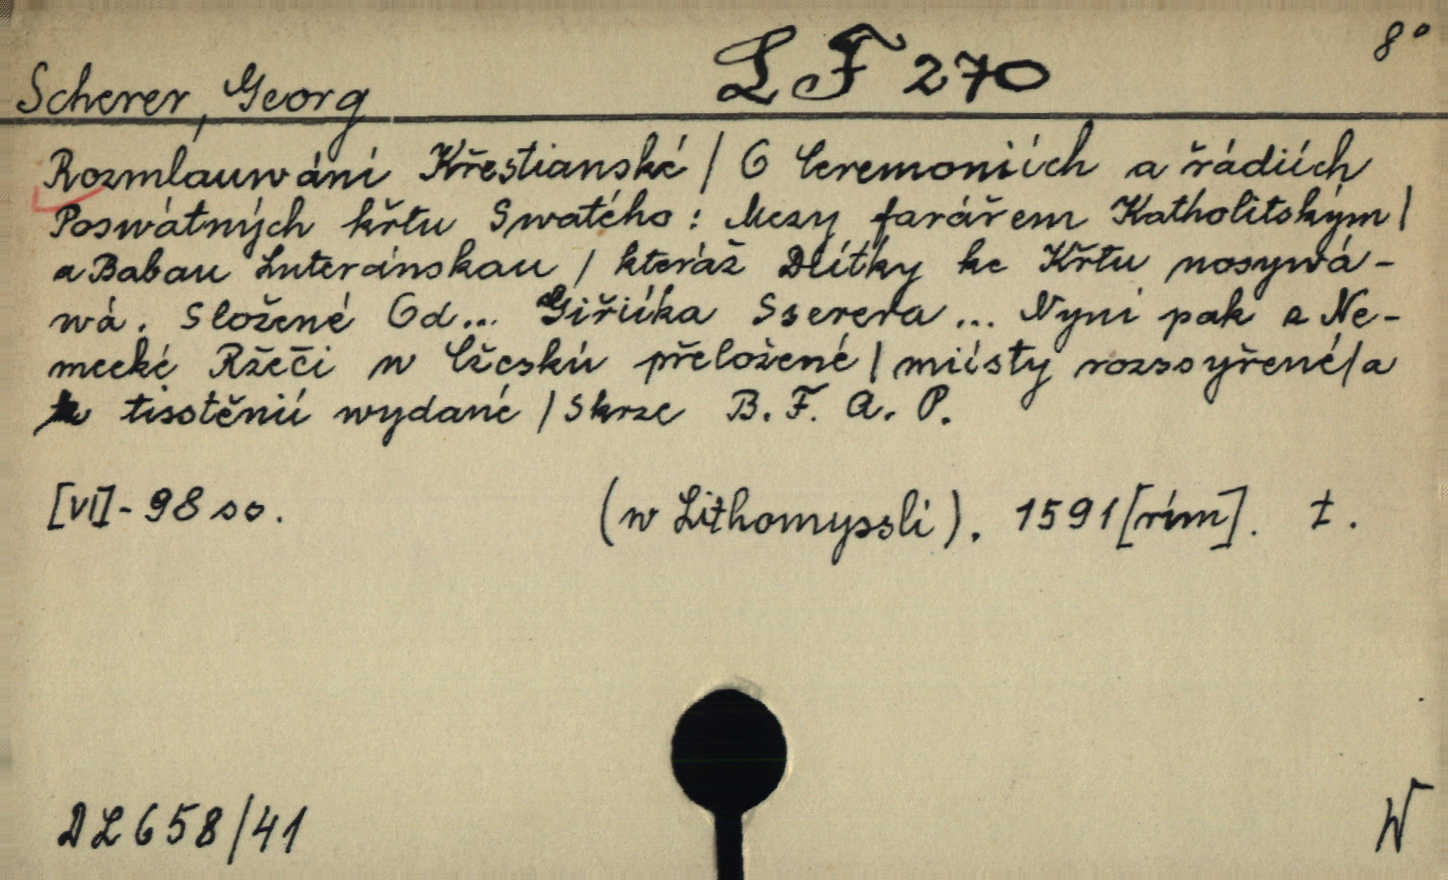 8°
L F 270
Scherer, Georg
Rozmlauwání Křestianské / O Ceremoniích a řádiích
Poswátných křtu Swatého: Mezy farářem Katholitským /
a Babau Luteránskau / kteráž Dítky ke Křtu nosywá-
wá. Složené Od... Giřiíka Sserera ... Nyní pak z Ne-
mecké Ržeči w Cžeskú přeložené / miísty rozssyřené / a
k tisstěnií wydané / Skrze B. F. A. P.
[VI]-98 ss. (w Lithomyssli). 1591 [rím]. ‡.
DL 658/41
W